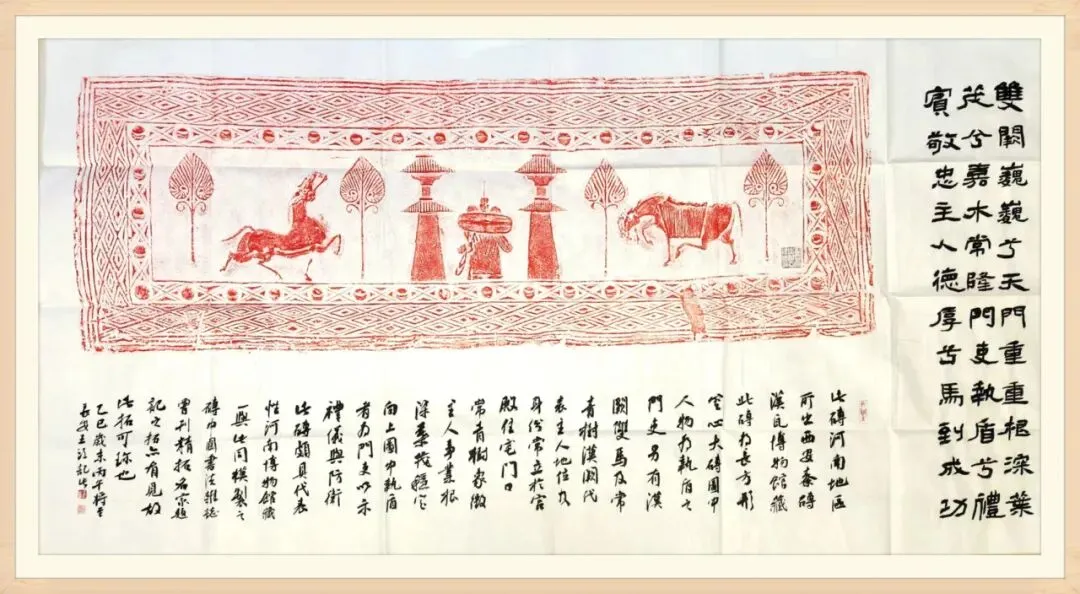 雙闕巍巍兮天門重重根深葉
茂兮嘉木常隆門吏執盾兮禮
賓敬忠主人德厚兮馬到成功
此磚河南地區
所出西安秦磚
漢瓦博物館藏
此磚為長方形
空心大磚圖中
人物為執盾之
門吏另有漢
闕雙馬及常
青樹漢闕代
表主人地位及
身份常立於宮
殿住宅門口
常青樹象徵
主人事業根
深葉茂穩定
向上圖中執盾
者為門吏以示
禮儀與防衛
此磚頗具代表
性河南博物館藏
一與此同模製之
磚中國書法雜誌
曾刊精拓名家題
記之拓亦有見故
此拓可珍也
乙巳歲末丙午將至
長安王記